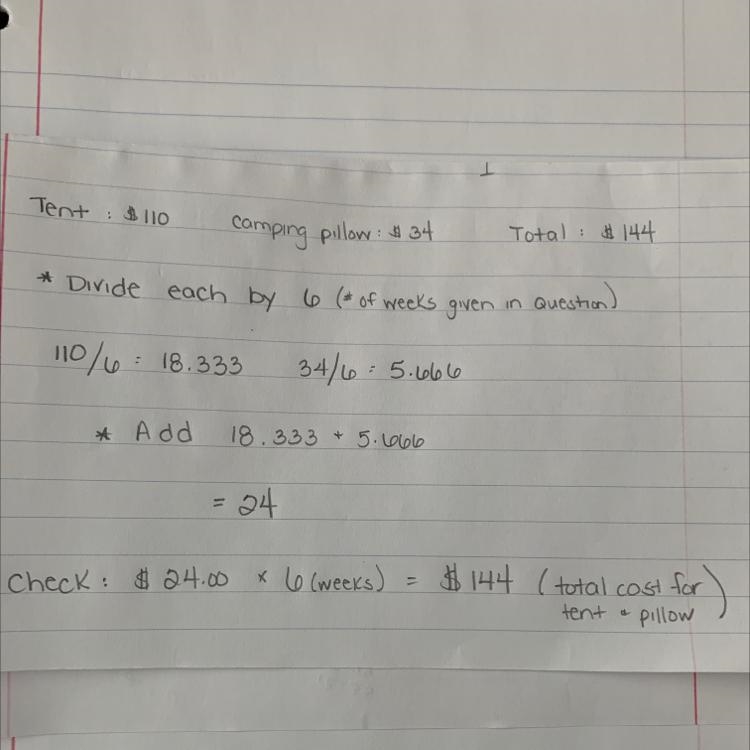 Tent : $110 camping pillow: $34 Total : $144
* Divide each by 6 (# of weeks given in question)
110/6 = 18.333 34/6 = 5.666
* Add 18.333 + 5.666
= 24
Check : $24.00 x 6 (weeks) = $144 (total cost for
tent & pillow)